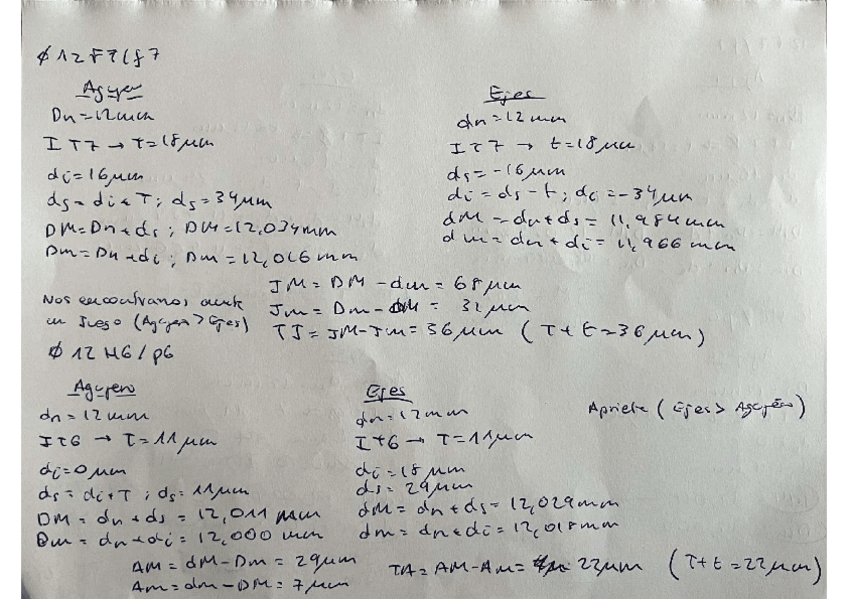 ϕ 12 F7/f7
Agujero
Dn = 12 mm
IT7 → t = 18 μm
di = 16 μm
ds = di + T ; ds = 34 μm
DM = Dn + ds ; DM = 12,034 mm
Dm = Dn + di ; Dm = 12,016 mm
Ejes
dn = 12 mm
IT7 → t = 18 μm
ds = -16 μm
di = ds - t ; di = -34 μm
dM = dn + ds = 11,984 mm
dm = dn + di = 11,966 mm
Nos encontramos ante
un juego (Agujero > Ejes)
JM = DM - dm = 68 μm
Jm = Dm - dM = 32 μm
TJ = JM - Jm = 36 μm (T + t = 36 μm)
ϕ 12 H6/p6
Agujero
dn = 12 mm
IT6 → T = 11 μm
di = 0 μm
ds = di + T ; ds = 11 μm
DM = dn + ds = 12,011 mm
Dm = dn + di = 12,000 mm
Ejes
dn = 12 mm
IT6 → T = 11 μm
di = 18 μm
ds = 29 μm
dM = dn + ds = 12,029 mm
dm = dn + di = 12,018 mm
Apriete (Ejes > Agujero)
AM = dM - Dm = 29 μm
Am = dm - DM = 7 μm
TA = AM - Am = 22 μm (T + t = 22 μm)